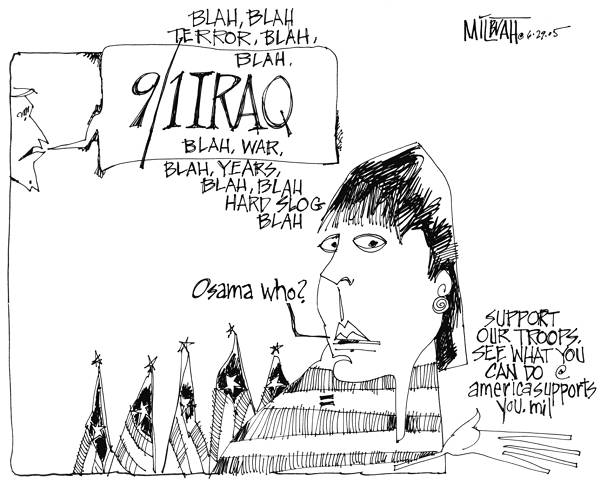 BLAH, BLAH
TERROR, BLAH,
BLAH.
9/11RAQ
BLAH, WAR,
BLAH, YEARS,
BLAH, BLAH
HARD SLOG
BLAH
MILBYAH@6.29.05
Osama who?
SUPPORT
OUR TROOPS.
SEE WHAT YOU
CAN DO @
americasupports
you.mil